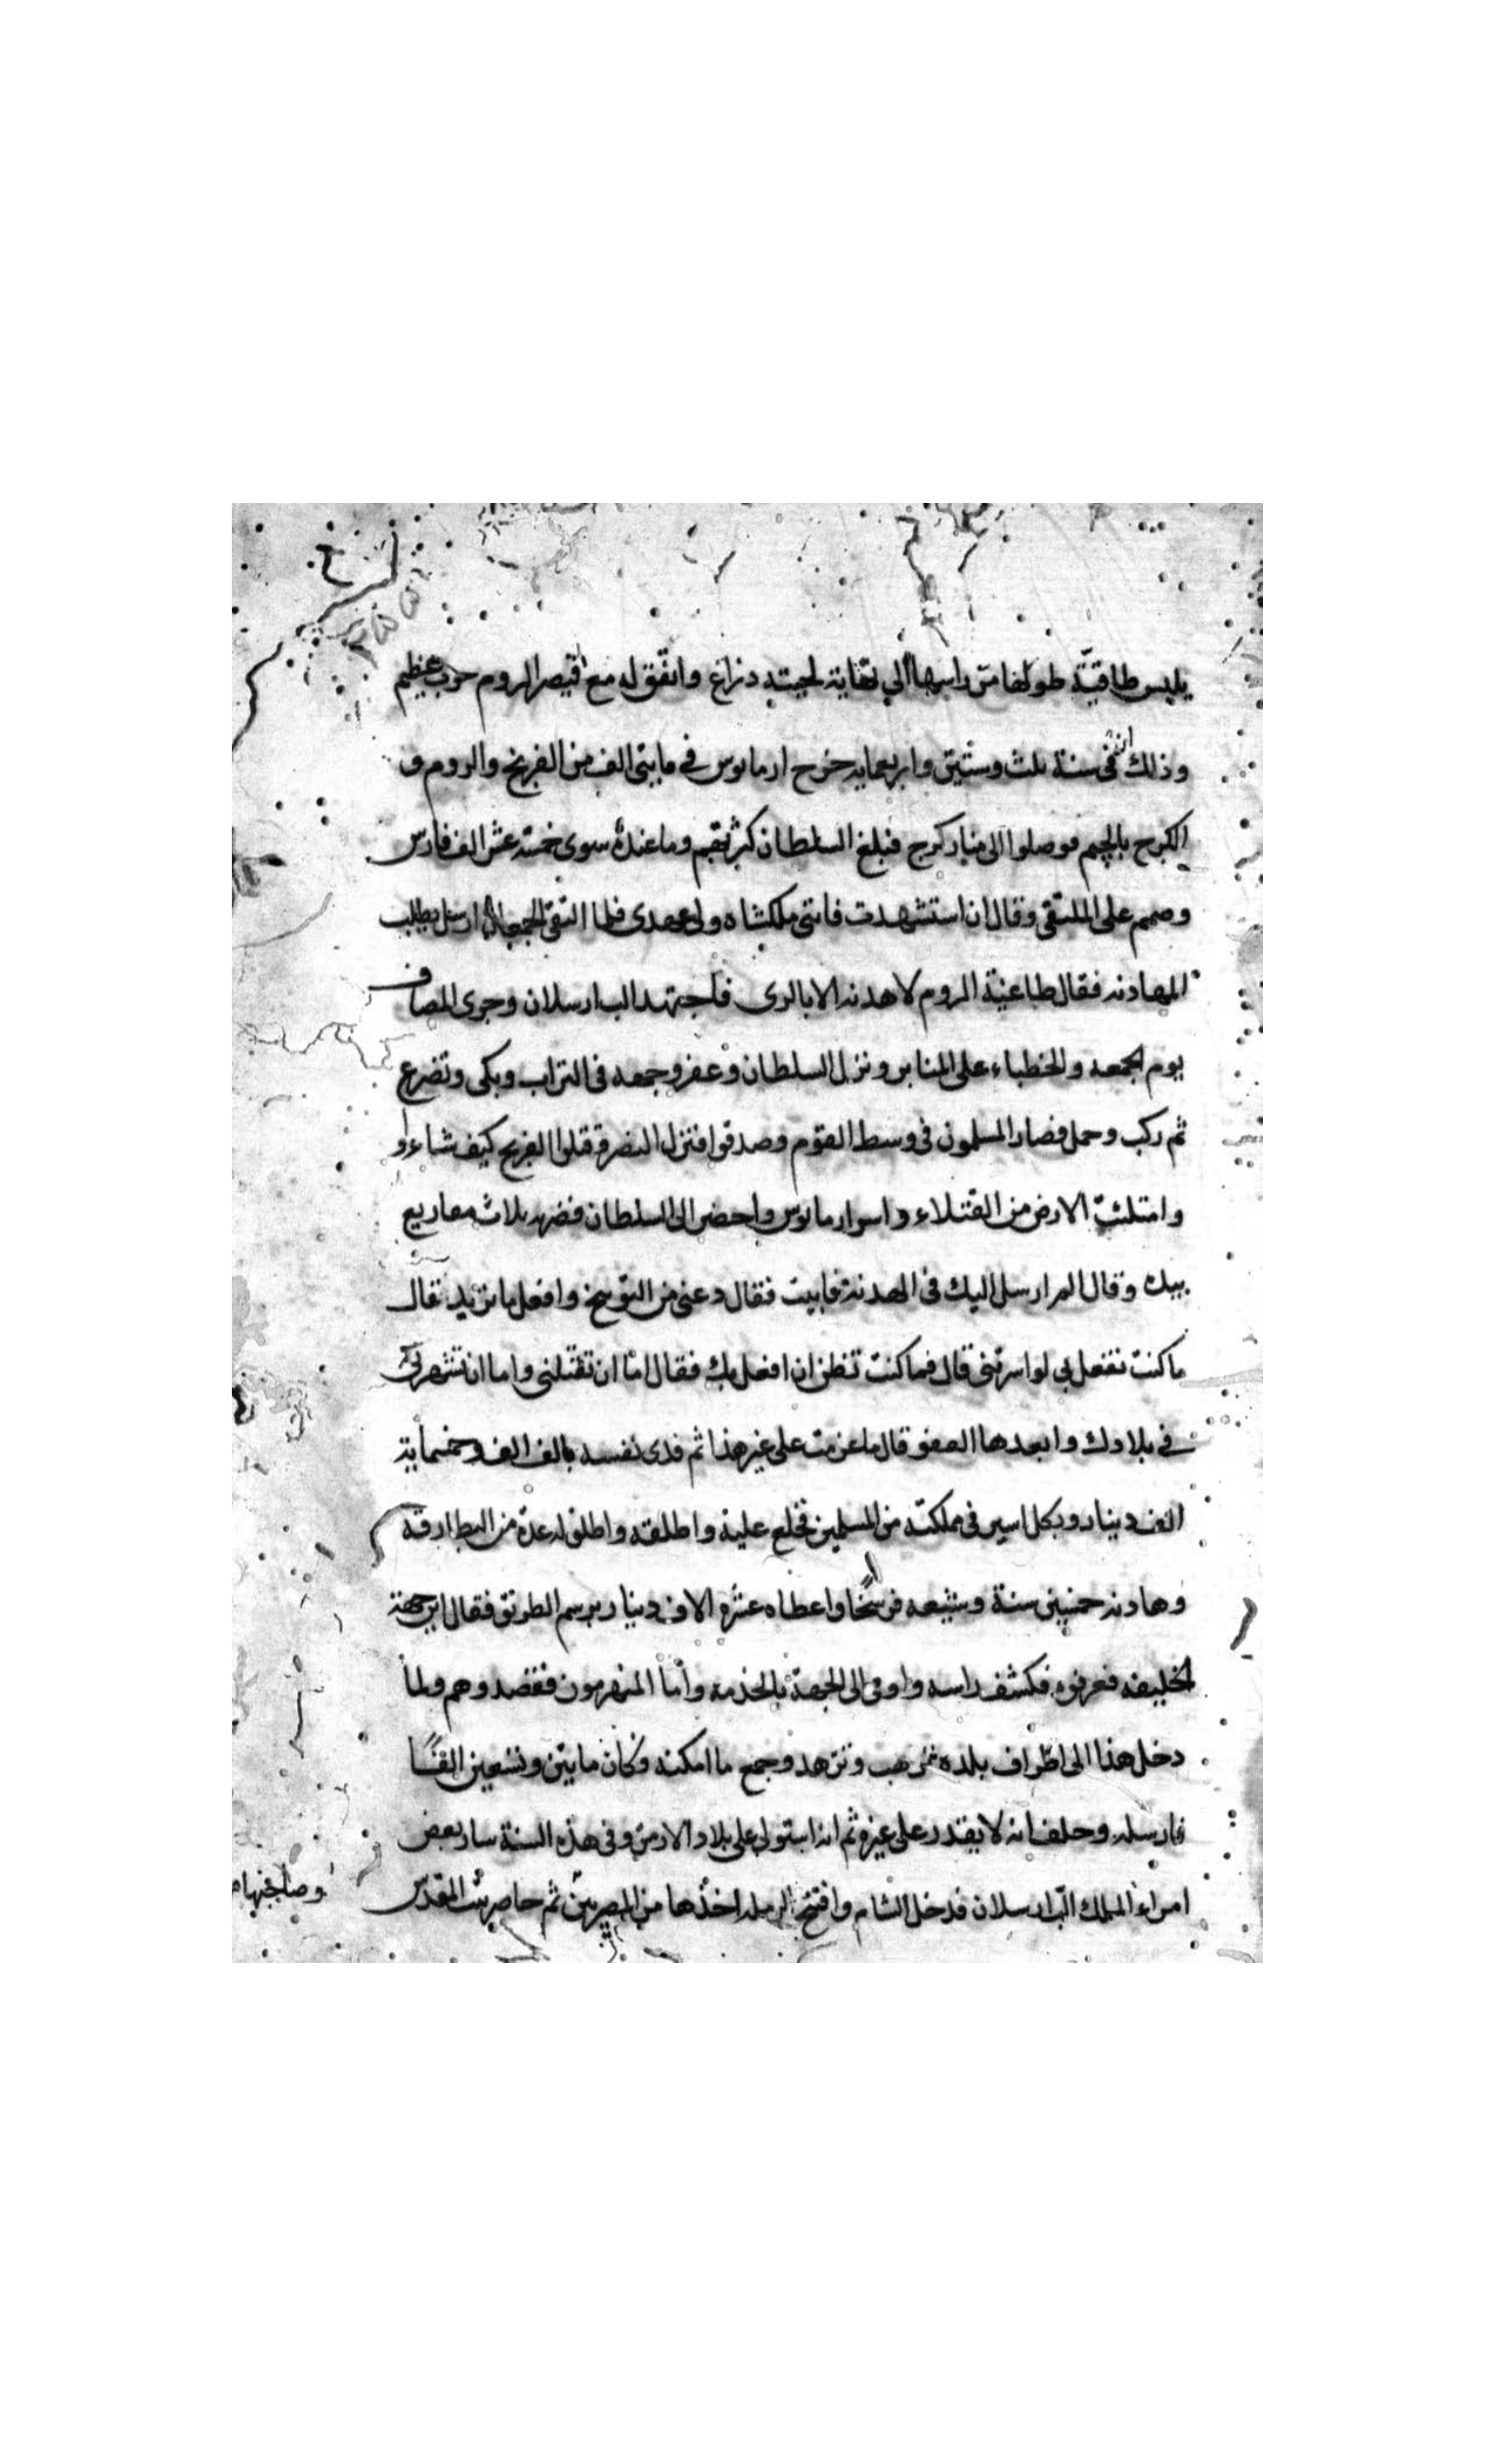 يلبس طاقية طولها من راسها الي نهاية لحيته دزاغ واتفق له مع قيصر الروم حرب عظيم
وذلك انه في سنة ثلث وستين واربعمايه خرج ارمانوس في مايتى الف من الفرنج والروم و
الكرج بالجيم فوصلوا الى مناز كرج فبلغ السلطان كثرتهم وما عنده سوى خمسة عشر الف فارس
وصمم على الملتقى وقال ان استشهدت فابنى ملكشاه ولى عهدى فلما التقى الجمعان ارسل يطلب
المهادنه فقال طاغية الروم لا هدنه الا بالرى فاجتهد الب ارسلان وجرى المصاف
يوم الجمعه والخطباء على المنابر ونزل السلطان وعفر وجهه فى التراب وبكى وتضرع
ثم ركب وحمل فصار المسلمون فى وسط القوم وصدقوا فنزل النصر قتلوا الفرنج كيف شاءوا
وامتلئت الارض من القتلاء واسر ارمانوس واحضر الى السلطان فضربه ثلاث مقاريع
بيده وقال الم ارسل اليك فى الهدنة فابيت فقال دعنى من التوبيخ وافعل ما تريد قال
ما كنت تفعل بي لو اسرتنى قال فما كنت تظن ان افعل بك فقال اما ان تقتلنى واما ان تشهرنى
في بلادك وابعدها العفو قال ما عزمت على غير هذا ثم فدى نفسه بالف الف وخمسماية
الف دينار وبكل اسير فى مملكته من المسلمين فخلع عليه واطلقه واطلق له عدة من البطارقة
وهادنه خمسين سنة وشيعه فرسخا واعطاه عشرة الاف دينار برسم الطريق فقال اين جهة
الخليفه فعرفوه فكشف راسه واومى الى الجهة بالخدمه وأما المنهزمون ففقدوهم ولما
دخل هذا الى اطراف بلده ترهب وتزهد وجمع ما امكنه وكان مايتين وتسعين الفا
فارسله وحلف انه لا يقدر على غيره ثم انه استولى على بلاد الارمن وفى هذه السنة سار بعض
امراء الملك الب ارسلان فدخل الشام وافتتح الرمله اخذها من المصريين ثم حاصر بيت المقدس